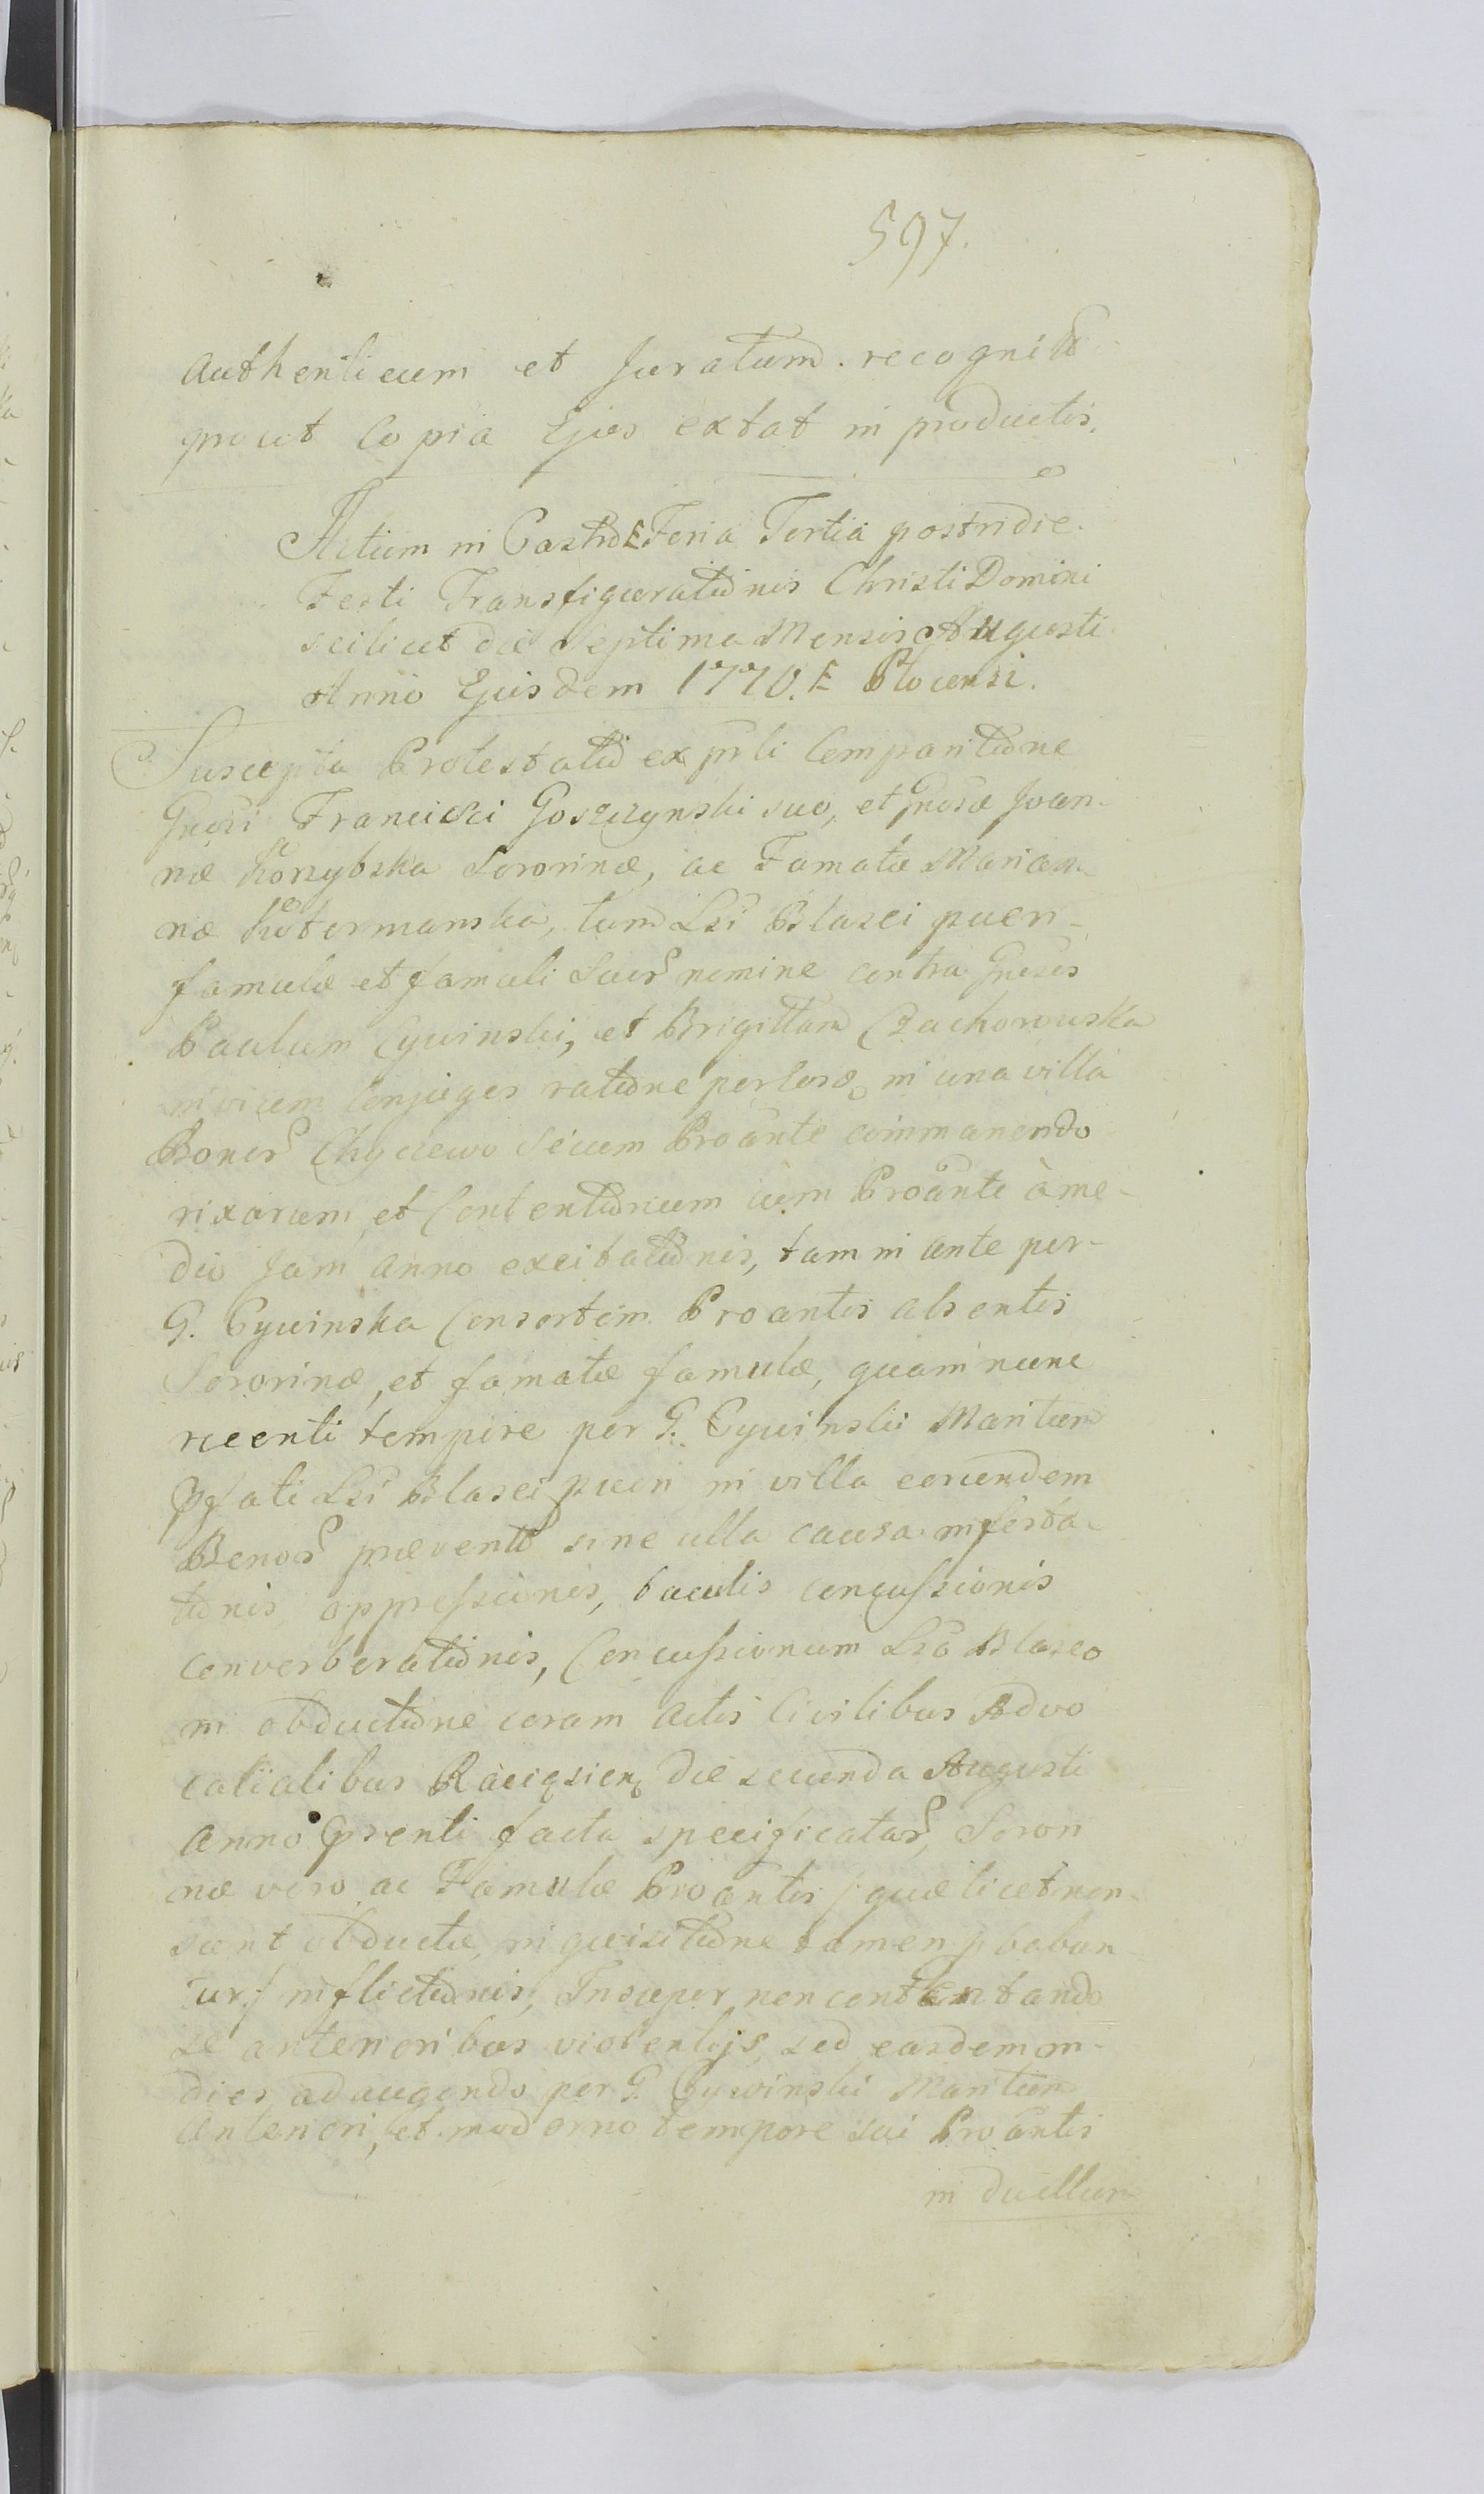 597.
authenticum et Juratum. recognit
prout Copia Ejus extat in productis.
Actum in Castro Feria Tertia postridie
Festi Transfigurationis Christi Domini
scilicet die Septima Mensis Augusti
Anno Ejusdem 1770. Plocensi.
Suscepta Protestatio ex prli Comparitione
Gnosi Francisci Goszczynski suo, et Gnosæ Joan-
næ Korzybska Sororinæ, ac Famatæ Marian-
næ Kotermanska, tum Lsi Blasei pueri
famulæ et famuli suor nomine contra Gnosos
Paulum Cywinski, et Brigittam Czachorowska
invicem Conjuges ratione per Coso in una villa
Bonor Chyczewo secum Proante commanendo
rixarum et Contentionum cum Proante à me-
dio Jam anno excitationis, tam in ante per
G. Cywinska Consortem Proantis absentis
Sororinæ, et famatæ famulæ, quam nunc
recenti tempore per G. Cywinski Maritum
Pfati Lsi Blasei pueri in villa eorundem
Bonor præventi sine ulla causa infesta-
tionis oppressionis, baculis concussionis
converberationis, Concussionum Lso Blaseo
in obductione coram actis Civilibus Advo
catialibus Raciąsien die secunda Augusti
anno Prsenti facta specificatar, Sorori
næ vero ac Famulæ Proantis /: quæ licet non
sunt obductæ, in quisitione tamen pbabun
tur :/ inflictionis, Insuper non contentando
se anterioribus violentijs, sed easdem in
dies adaugendo per G. Cywinski Maritum
anteriori, et moderno tempore sui Proantis
in duellum